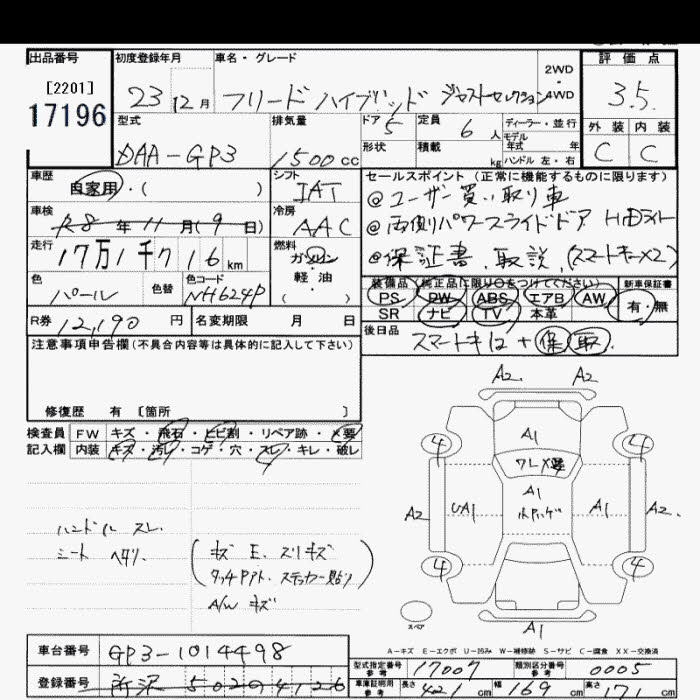 出品番号 初度登録年月 車名・グレード 2WD 4WD 評価点
[2201]
17196
23 12月 フリード ハイブリッド ジャストセレクション 3.5
型式 排気量 ドア 5 定員 6人 ディーラー・並行 外装 内装
モデル年式 年
DAA-GP3 1500cc 形状 積載 kg ハンドル 左・右 C C
車歴 シフト セールスポイント (正常に機能するものに限ります)
自家用・( ) IAT @ユーザー買い取り車
車検 冷房 @両側パワースライドドア HIDライト
R8年11月(9日) AAC
走行 燃料 @保証書、取説、(スマートキー×2)
17万1千716km ガソリン・軽・油( )
色 色替 色コード 装備品 (純正品に限り○をつけてください) 新車保証書
パール NH624P PS PW ABS エアB AW 有・無
SR ナビ TV 本革
R券 12,190円 名変期限 月 日 後日品
スマートキー12 + 保 取
注意事項申告欄(不具合内容等は具体的に記入して下さい)
修復歴 有 [箇所 ]
検査員記入欄 FW キズ・飛石・ヒビ割・リペア跡・×要
内装 キズ・汚レ・コゲ・穴・スレ・キレ・破レ
ハンドル スレ
シート ヘタリ
(キズ E、スリキズ
タッチアト、ステッカー貼り)
A/W キズ
A2 A2
A1
4 4
フレ×要
A1
A2 UA1 A1 A2
4 4
スペア
A1
A-キズ E-エクボ U-凹み W-補修跡 S-サビ C-腐食 XX-交換済
車台番号 GP3-1014498
型式指定番号 参考 17007 類別区分番号 参考 0005
登録番号 所沢 502 の 4126
車庫証明用 参考 長さ 421cm 幅 169cm 高さ 171cm